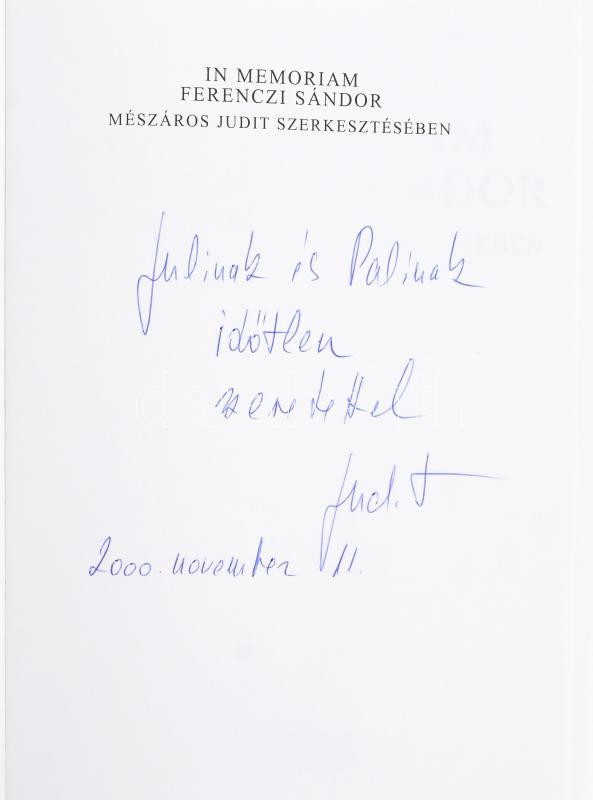 IN MEMORIAM
FERENCZI SÁNDOR
MÉSZÁROS JUDIT SZERKESZTÉSÉBEN
Julinak és Palinak
időtlen
szeretettel
Judit
2000. november 11.